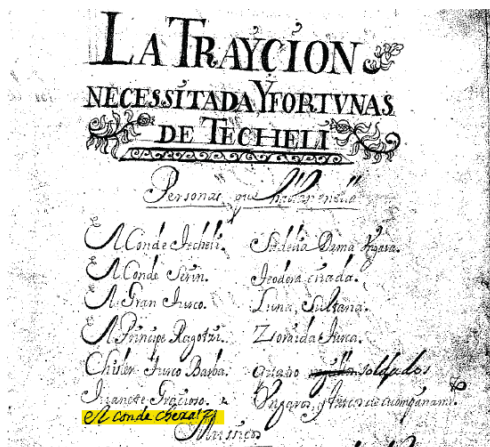 LA TRAYCION
NECESSITADA Y FORTVNAS
DE TECHELI
Personas que hablan en ella
El Conde Techeli.
El Conde Serin.
El Gran Turco.
El Principe Ragotzi.
Turco Barba.
Juanete Gracioso.
El conde
Dama Ungara.
Teodora criada.
Luna, Sultana.
Zoraida Turca.
quatro soldados
Ungaros, y Turcos de acompañami.to
Musicos